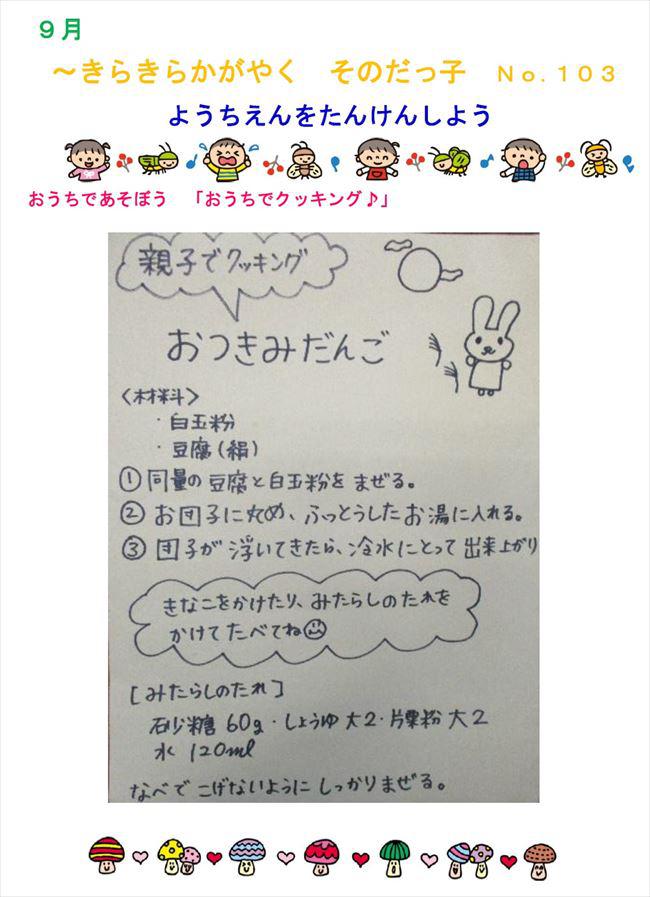 ９月
～きらきらかがやく　そのだっ子　Ｎｏ．１０３
ようちえんをたんけんしよう
おうちであそぼう　「おうちでクッキング♪」
親子でクッキング
おつきみだんご
〈材料〉
・白玉粉
・豆腐(絹)
① 同量の豆腐と白玉粉をまぜる。
② お団子に丸め、ふっとうしたお湯に入れる。
③ 団子が浮いてきたら、冷水にとって出来上がり
きなこをかけたり、みたらしのたれを
かけてたべてね
[みたらしのたれ]
砂糖60g・しょうゆ大2・片栗粉大2
水 120ml
なべでこげないようにしっかりまぜる。